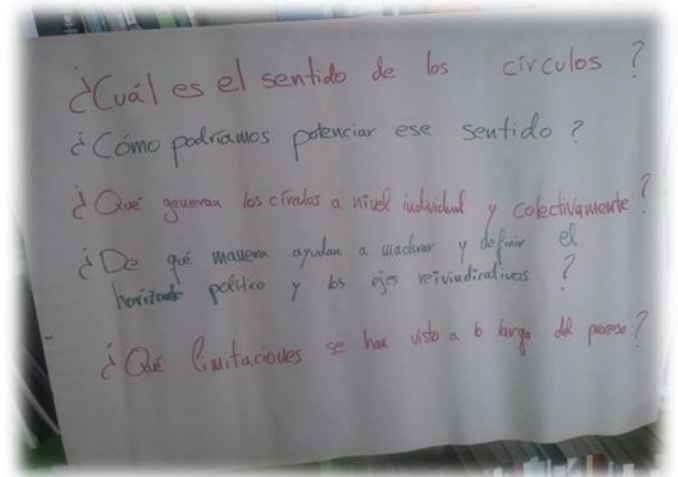 ¿Cuál es el sentido de los círculos?
¿Cómo podríamos potenciar ese sentido?
¿Qué generan los círculos a nivel individual y colectivamente?
¿De qué manera ayudan a madurar y definir el
horizonte político y los ejes reivindicativos?
¿Qué limitaciones se han visto a lo largo del proceso?